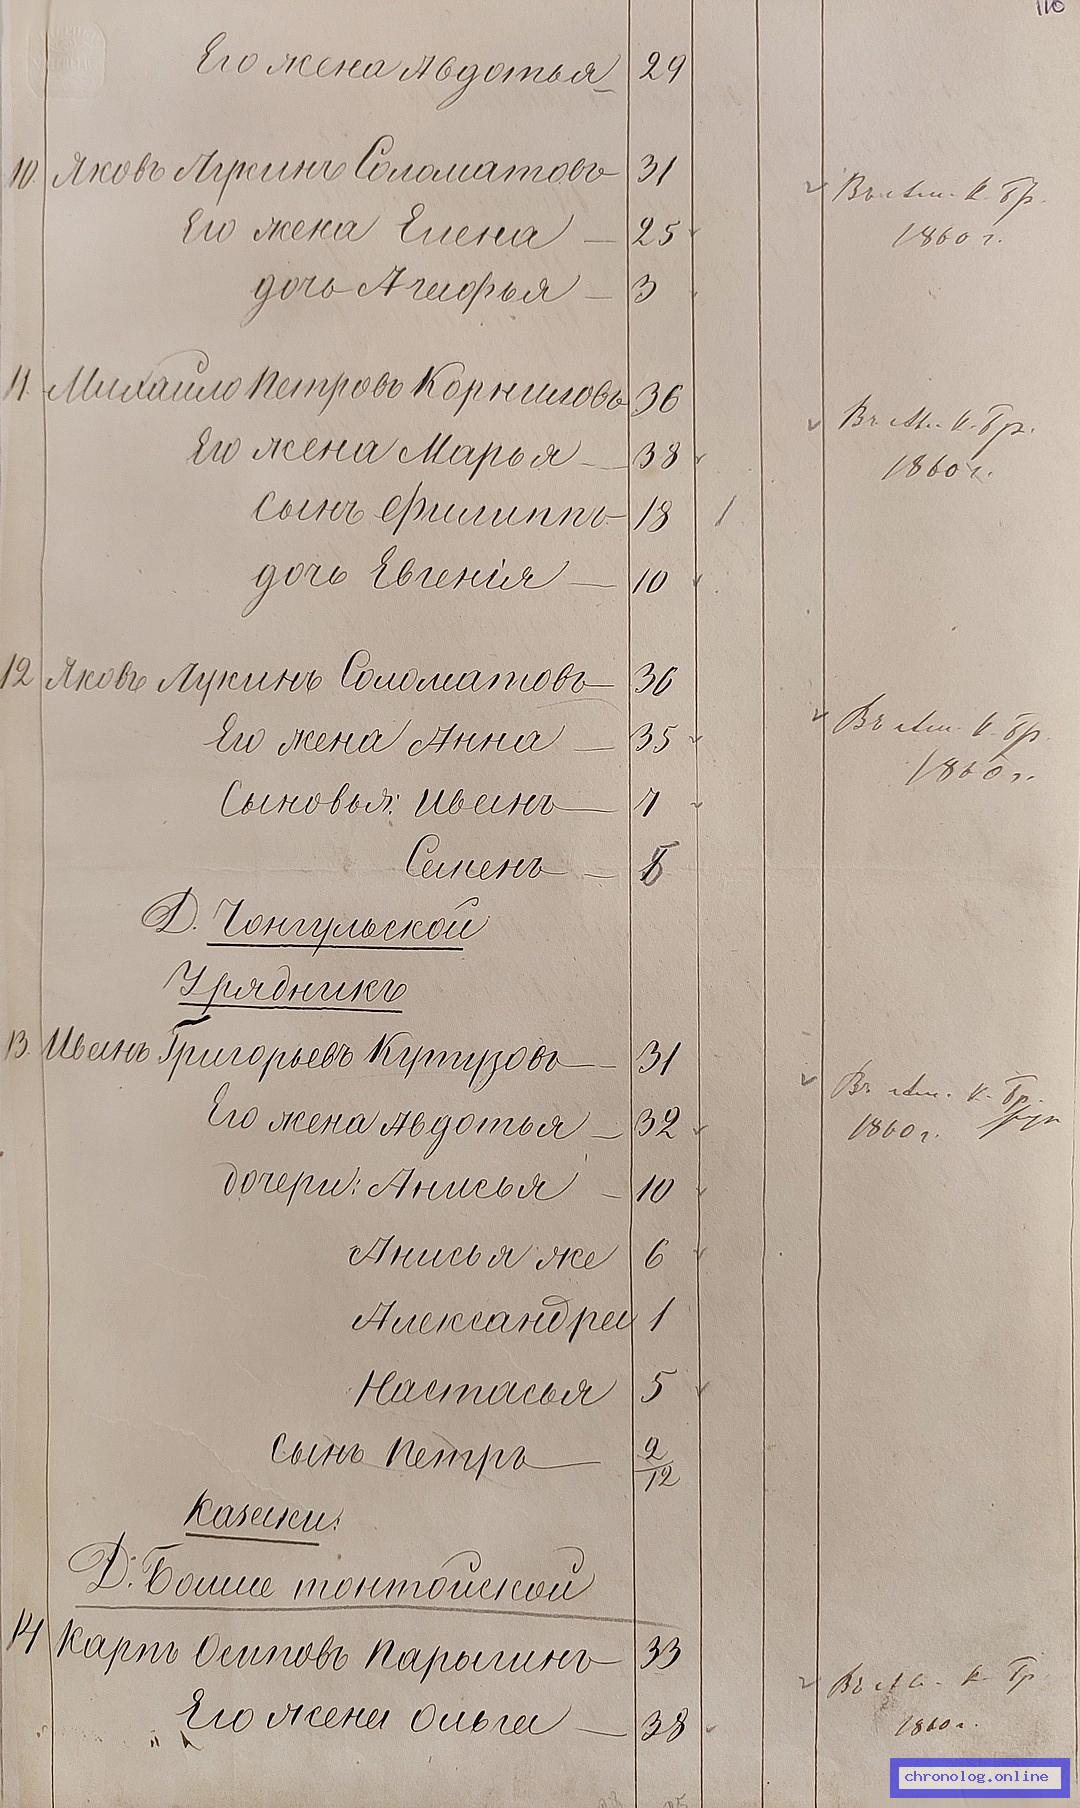 110
Его жена Авдотья 29
10. Яковъ Лукинъ Соломатовъ 31
Въ Ам. к. бр.
1860 г.
Его жена Елена — 25
дочь Агафья — 3
11. Михайло Петровъ Корниловъ 36
Въ Ам. к. бр.
1860 г.
Его жена Марья — 38
сынъ Филиппъ 18 1
дочь Евгенія — 10
12 Яковъ Лукинъ Соломатовъ 36
Въ Ам. к. бр.
1860 г.
Его жена Анна — 35
Сыновья: Иванъ — 7
Семенъ —
Д. Чонгульской
Урядникъ
13. Иванъ Григорьевъ Кутузовъ — 31
Въ Ам. к. бр.
1860 г.
Его жена Авдотья — 32
дочери: Анисья — 10
Анисья же 6
Александра 1
Настасья 5
сынъ Петръ — 2/12
Казаки:
Д. Больше тонтойской
14 Карпъ Осиповъ Парыгинъ 33
Въ Ам. к. бр
1860 г.
Его жена Ольга — 38
chronolog.online